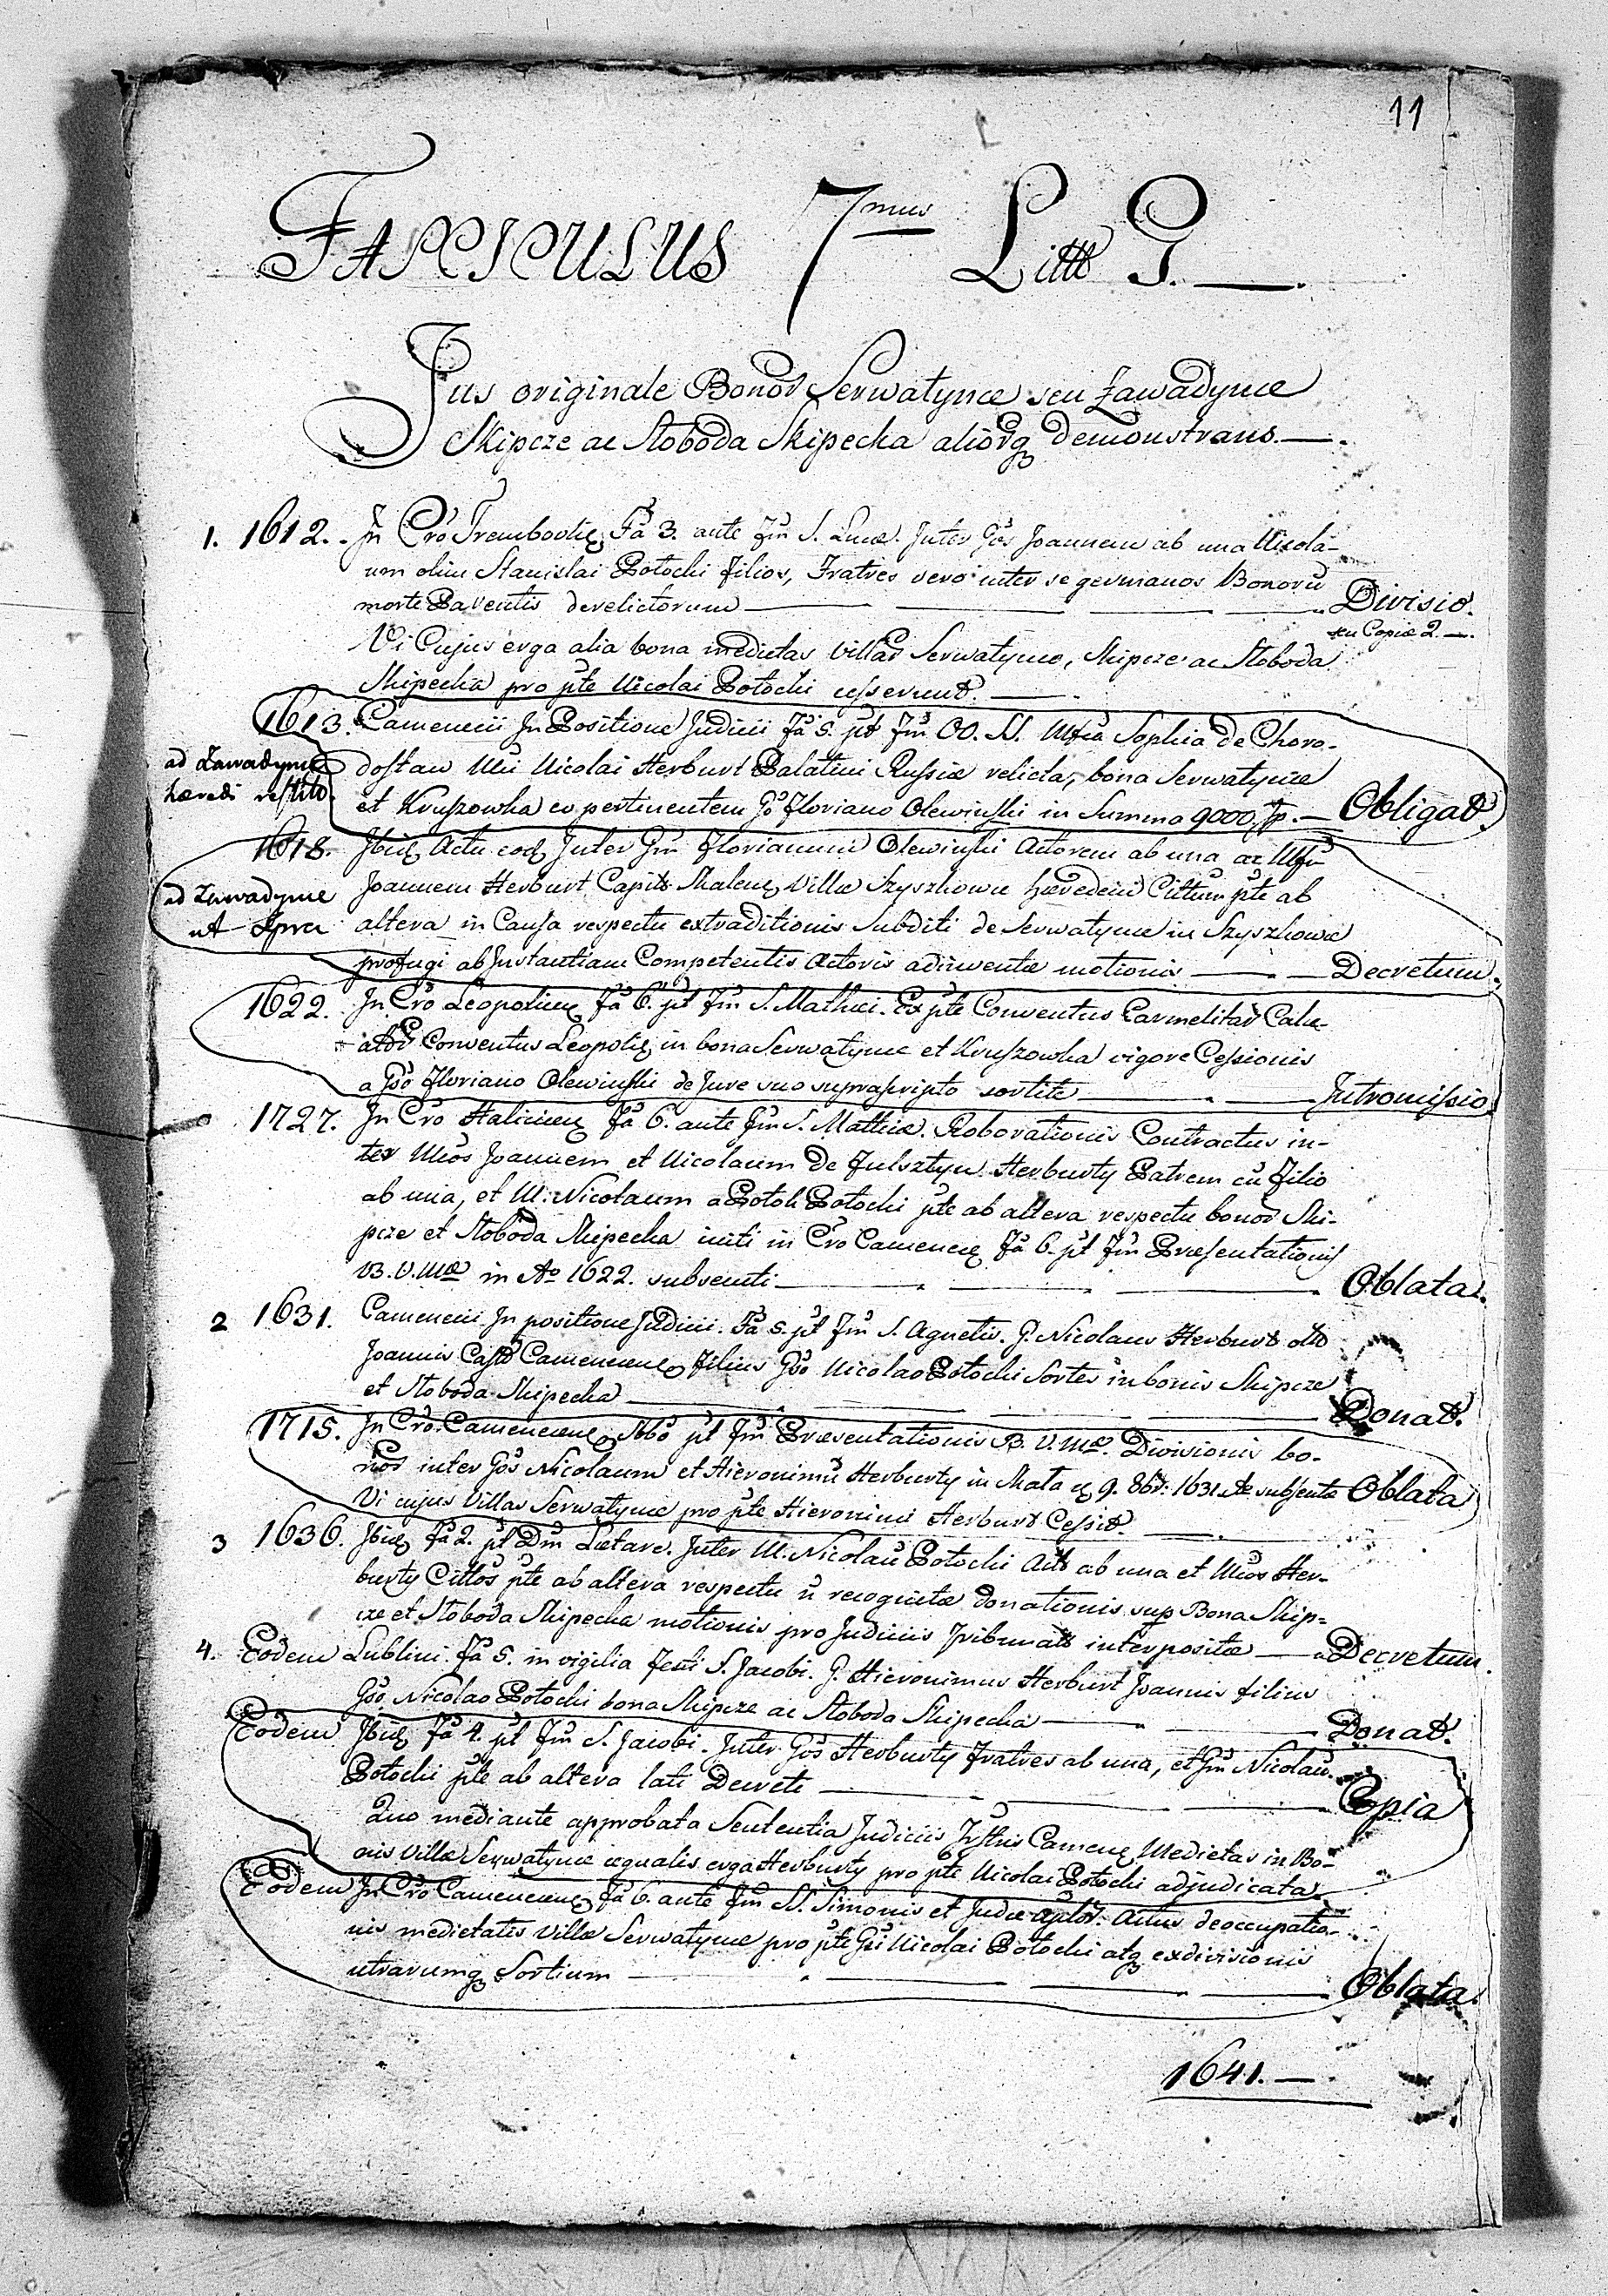 11
FASCICULUS 7mus Litt G.
Jus originale Bonor Serwatynce seu Zawadynce
Skipcze ac Sloboda Skipecka aliorq demonstrans.
1. 1612. In Cro Trembovlię Fa 3. ante Fm S. Lucæ. Inter Gos Joannem ab una Nicola-
um olim Stanislai Potocki filios, Fratres vero inter se germanos Bonoru
morte Parentis derelictorum Divisio.
seu Copiæ 2.
Vi Cujus erga alia bona medietas Villar Serwatynce, Skipcze ac Sloboda
Skipecka pro pte Nicolai Potocki cesserunt.
1613. Camenecii In Positione Judicii Fa 5. pt Fm OO. SS. Mfca Sophia de Choro-
ad Zawadynce dostaw Mci Nicolai Herburt Palatini Russiæ relicta, bona Serwatynce
hæredi restito. et Kruszowka eo pertinentem Go Floriano Olewinski in Summa 9000. fp. Obligat.
1618. Ibidę Actu eodę Inter Gm Florianum Olewinski Actorem ab una ac Mfcu
Joannem Herburt Capit Skalenę Villæ Szyszkowce hæredem Cittum pte ab
ad Zawadynce
ut Spra altera in Causa respectu extraditionis Subditi de Serwatynce in Szyszkowce
profugi ab Instantiam Competentis Actoris adinventæ motionis Decretum.
1622. In Cro Leopolienę Fa 6. pt Fm S. Mathei. Ex pte Conventus Carmelitar Calce-
ator Conventus Leopolię in bona Serwatynce et Kruszowka vigore Cessionis
a Gso Floriano Olewinski de Jure suo suprascripto sortite Intromissio.
1727. In Cro Halicienę Fa 6. ante Fm S. Mathiæ. Roborationis Contractus in-
ter Mcos Joannem et Nicolaum de Fulsztyn Herburty Patrem cu Filio
ab una, et M. Nicolaum a Potok Potocki pte ab altera respectu bonor Ski-
pcze et Sloboda Skipecka initi in Cro Camenecę Fa 6. pt Fm Præsentationis
B. V. Mæ in Ao 1622. subsecuti Oblata.
2 1631. Camenecii In positione Judicii. Fa 5. pt Fm S. Agnetis. G. Nicolaus Herburt olim
Joannis Castel Camenecenę filius Gso Nicolao Potocki Sortes in bonis Skipcze
et Sloboda Skipecka Donat.
1715. In Cro Camenecenę Sbbo pt Fm Præsentationis B. V. Mæ. Divisionis bo-
nor inter Gos Nicolaum et Hieronimu Herburty in Skala ę 9. 8br. 1631. Ae subsecutæ Oblata
Vi cujus Villas Serwatynce pro pte Hieronimi Herburt Cessit.
3 1636. Ibidę Fa 2. pt Dm Lætare. Inter M. Nicolau Potocki Act ab una et Mcos Her-
burty Cittos pte ab altera respectu n recognitæ donationis sup Bona Skip-
cze et Sloboda Skipecka motionis pro Judiciis Tribunal interpositæ Decretum.
4. Eodem Lublini. Fa 5. in vigilia Festi S. Jacobi. G. Hieronimus Herburt Joannis filius
Gso Nicolao Potocki bona Skipcze ac Sloboda Skipecka Donat.
Eodem Ibidę Fa 4. pt Fm S. Jacobi. Inter Gos Herburty Fratres ab una, et Gm Nicolau
Potocki pte ab altera lati Decreti Copia
Quo mediante approbata Sententia Judiciis Trstris Camenę Medietas in Bo-
nis Villæ Serwatynce æqualis erga Herburty pro pte Nicolai Potocki adjudicata.
Eodem In Cro Camenecenę Fa 6. ante Fm SS. Simonis et Judæ aplor. Actus deoccupatio-
nis medietatis Villæ Serwatynce pro pte Gsi Nicolai Potocki atq exdivisionis
utrarumq Sortium Oblata.
1641.